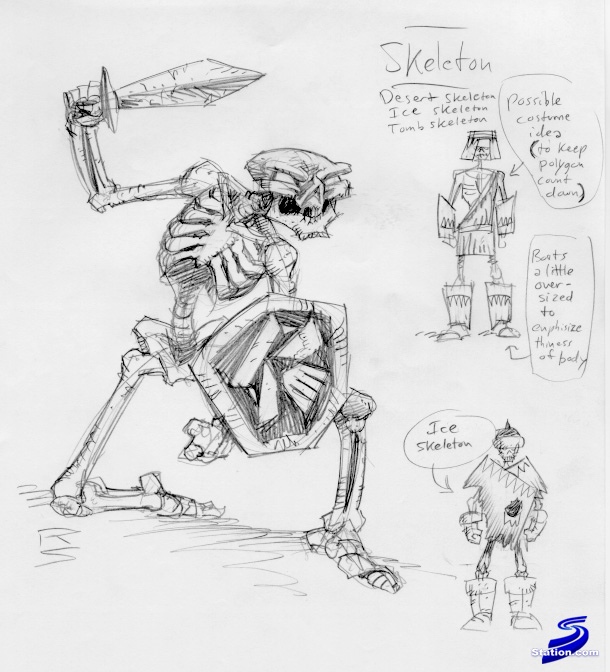 Skeleton
Desert skeleton
Ice skeleton
Tomb skeleton
Possible
costume
idea
(to keep
polygon
count
down)
Boots
a little
over-
sized
to
emphisize
thinness
of body
Ice
skeleton
RS
Station.com